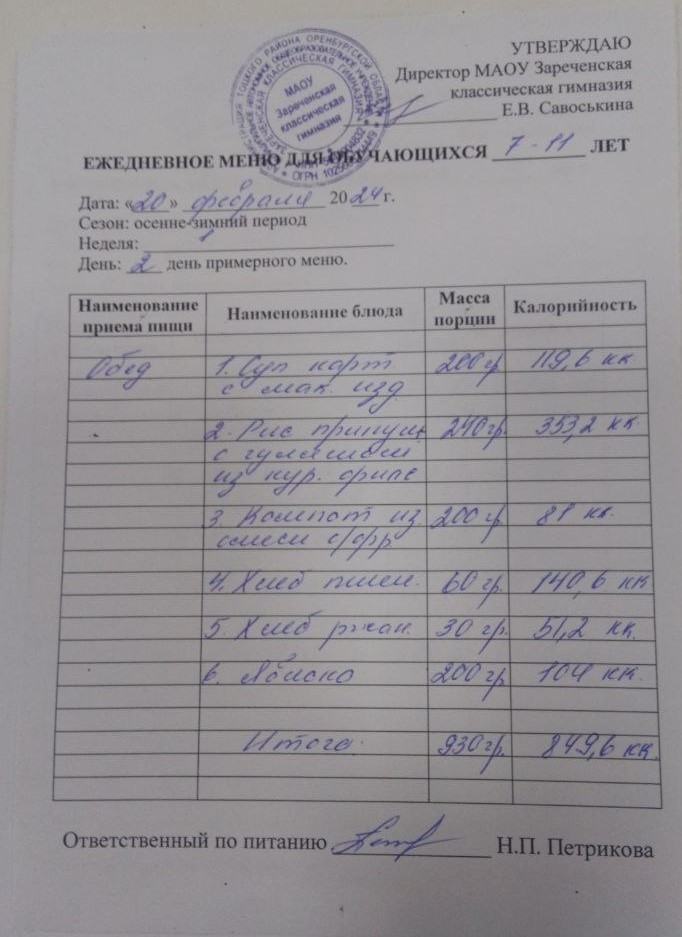 УТВЕРЖДАЮ
Директор МАОУ Зареченская
классическая гимназия
Е.В. Савоськина
МАОУ
Зареченская
классическая
гимназия
ЕЖЕДНЕВНОЕ МЕНЮ ДЛЯ ОБУЧАЮЩИХСЯ 7-11 ЛЕТ
Дата: «20» февраля 2024 г.
Сезон: осенне-зимний период
Неделя: 1
День: 2 день примерного меню.
Наименование приема пищи Наименование блюда Масса порции Калорийность
Обед 1. Суп карт 200 гр 119,6 кк
с мак. изд.
2. Рис припущ 240 гр. 353,2 кк.
с гуляшом
из кур. филе
3. Компот из 200 гр 81 кк.
смеси с/фр
4. Хлеб пшен. 60 гр. 140,6 кк
5. Хлеб ржан. 30 гр. 51,2 кк.
6. Яблоко 200 гр 104 кк.
Итого: 930 гр. 849,6 кк.
Ответственный по питанию Н.П. Петрикова